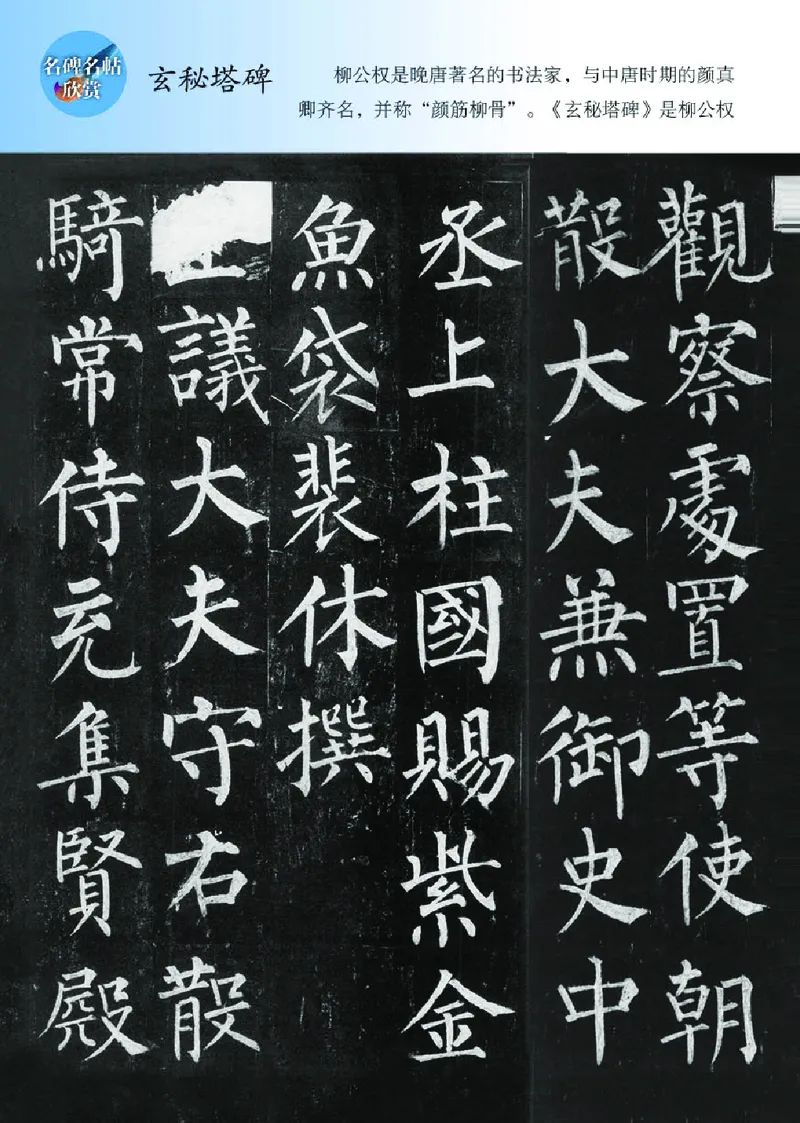 名碑名帖
欣赏
玄秘塔碑
柳公权是晚唐著名的书法家，与中唐时期的颜真
卿齐名，并称“颜筋柳骨”。《玄秘塔碑》是柳公权
觀察處置等使朝
散大夫兼御史中
丞上柱國賜紫金
魚袋裴休撰
議大夫守右散
騎常侍充集賢殿